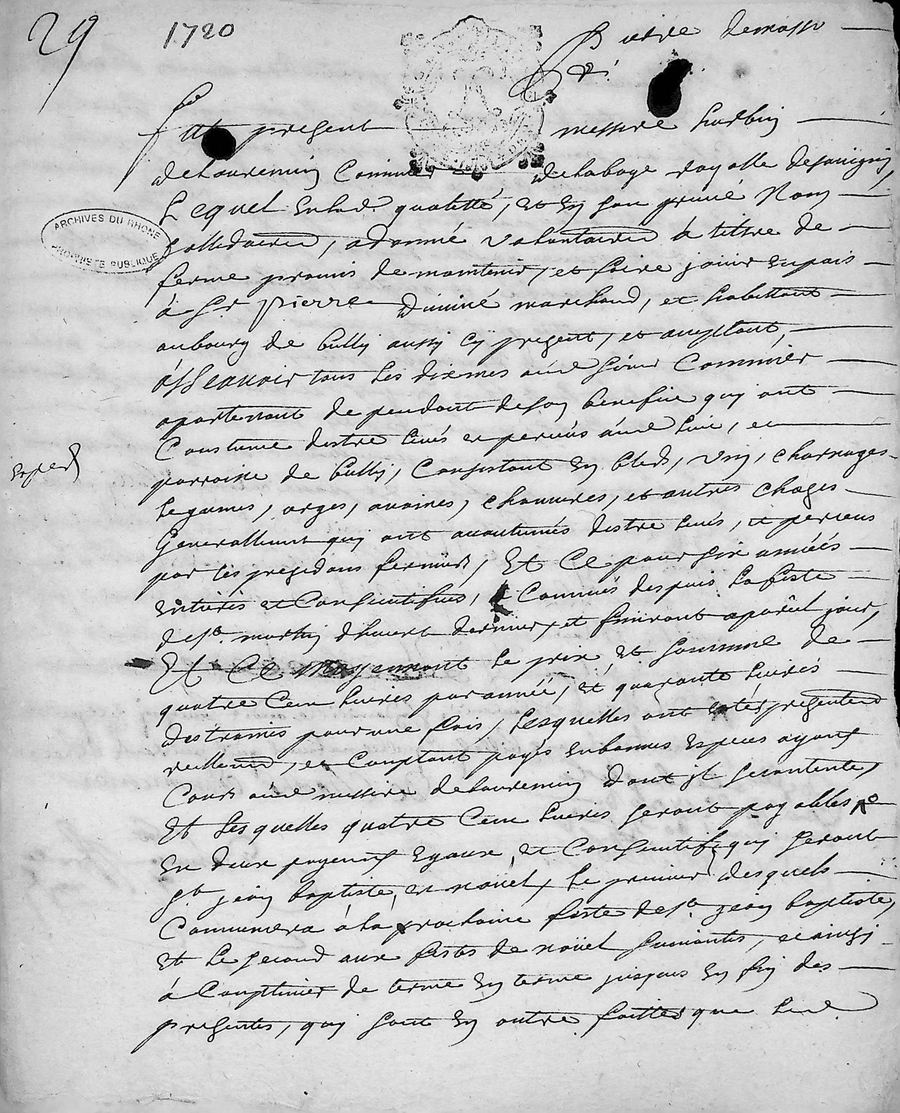 29 1720
fut present messire
Lequel en lad. qualitté, et en son privé Nom
sollidairem, a donné volontairem à tittre de
ferme promis de maintenir, et faire jouir en paix
à Sr pierre marchand, et habittant
au bourg de bully aussy cy present, et acceptant,
assavoir tous les dixmes aud. sieur Commier
apartenant de pendant de son benefice qui ont
Coustume destre levés et perceus aud. lieu, et
parroisse de bully, Consistant en bleds, vin, charnages
Legumes, orges, avoines, chanvres, et autres choses
Generallement qui ont accoutumés destre levés, et perceus
par les precedans fermiers, Et Ce pour six années
entieres et Consecutifves, Commencés despuis la feste
de st martin dhivert dernier, et finiront a pareil jour,
Et Ce moyennant le prix et somme de
quatre Cens Livres par année, et quarante Livres
destraines pour une fois, Lesquelles ont estés presentem
reellem, et Comptant payés en bonnes especes ayant
Cours aud. messire dont il se contente,
Et Lesquelles quatre Cens Livres seront payables
en deux payemens Egaux, et Consecutifs qui seront
st jean baptiste, et noüel, Le premier desquels
Commencera à la prochaine feste de st jean baptiste,
et Le second aux festes de noüel suivantes, et ainsy
à Continuer de terme en terme jusques en fin des
presentes, qui sont en outre faittes que led.
ARCHIVES DU RHONE
PROPRIETE PUBLIQUE
exped